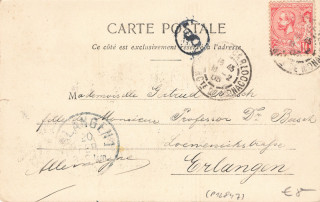 CARTE POSTALE
Ce côté est exclusivement réservé à l'adresse.
Mademoiselle
fille Monsieur Professor Dr. Busch
Loewenichstrasse
Erlangen
Allemagne
ERLANGEN 1
(P16847)
€8